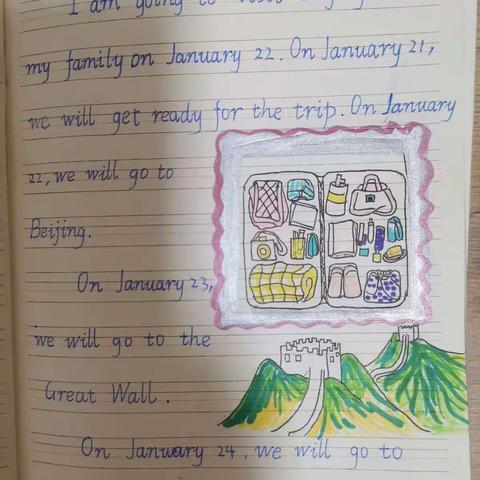 I am going to
my family on January 22. On January 21,
we will get ready for the trip. On January
22, we will go to
Beijing.
On January 23,
we will go to the
Great Wall.
On January 24, we will go to